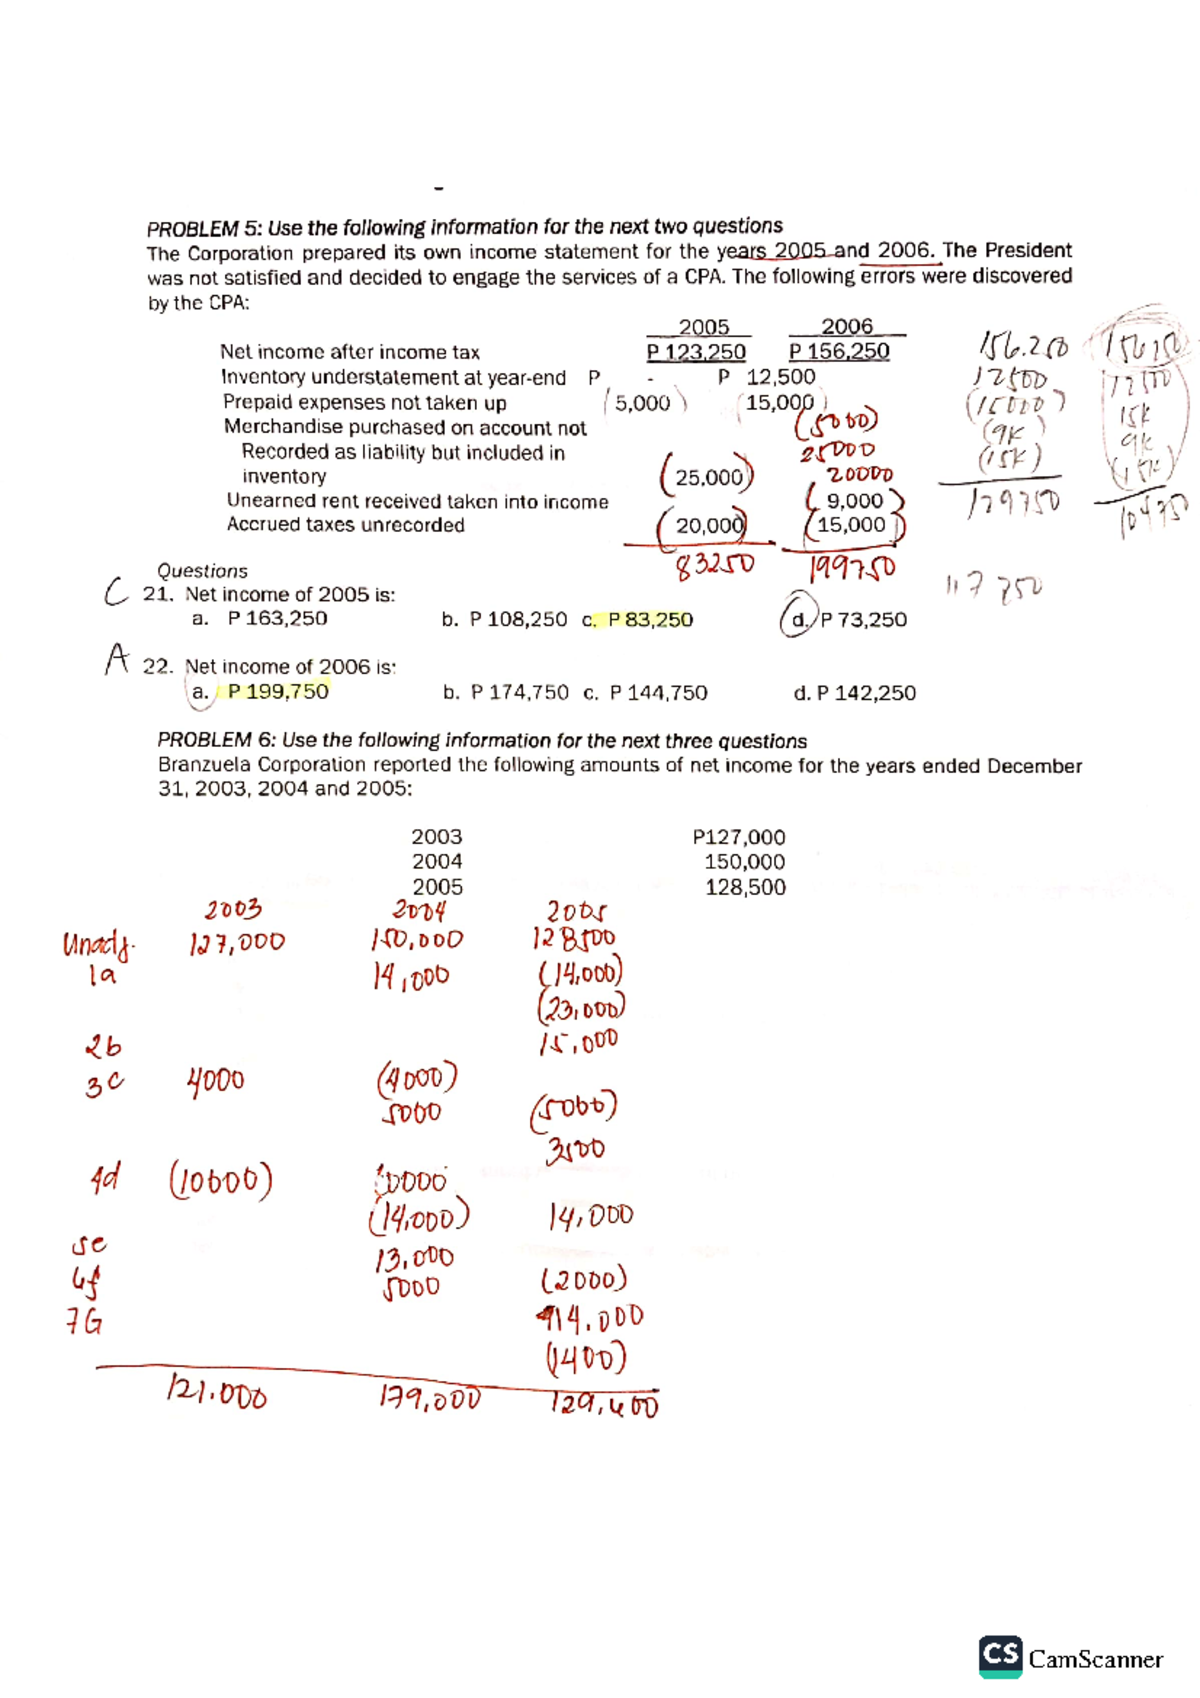 PROBLEM 5: Use the following information for the next two questions
The Corporation prepared its own income statement for the years 2005 and 2006. The President
was not satisfied and decided to engage the services of a CPA. The following errors were discovered
by the CPA:
2005 2006
Net income after income tax P 123,250 P 156,250
Inventory understatement at year-end P - P 12,500
Prepaid expenses not taken up (5,000) (15,000)
Merchandise purchased on account not (5000)
Recorded as liability but included in 25000
inventory (25,000) 20000
Unearned rent received taken into income (9,000)
Accrued taxes unrecorded (20,000) (15,000)
83250 199750
156.250
12500
(15000)
(9K)
(15K)
129750
156250
12500
15K
9K
(15K)
104750
117250
Questions
C 21. Net income of 2005 is:
a. P 163,250 b. P 108,250 c. P 83,250 d. P 73,250
A 22. Net income of 2006 is:
a. P 199,750 b. P 174,750 c. P 144,750 d. P 142,250
PROBLEM 6: Use the following information for the next three questions
Branzuela Corporation reported the following amounts of net income for the years ended December
31, 2003, 2004 and 2005:
2003 P127,000
2004 150,000
2005 128,500
2003 2004 2005
Unadj. 127,000 150,000 128500
1a 14,000 (14,000)
(23,000)
2b 15,000
3c 4000 (4000)
5000 (5000)
3500
4d (10000) 10000
(14,000) 14,000
5e 13,000
6f 5000 (2000)
7G 14.000
(1400)
121.000 179,000 129,400
CS CamScanner